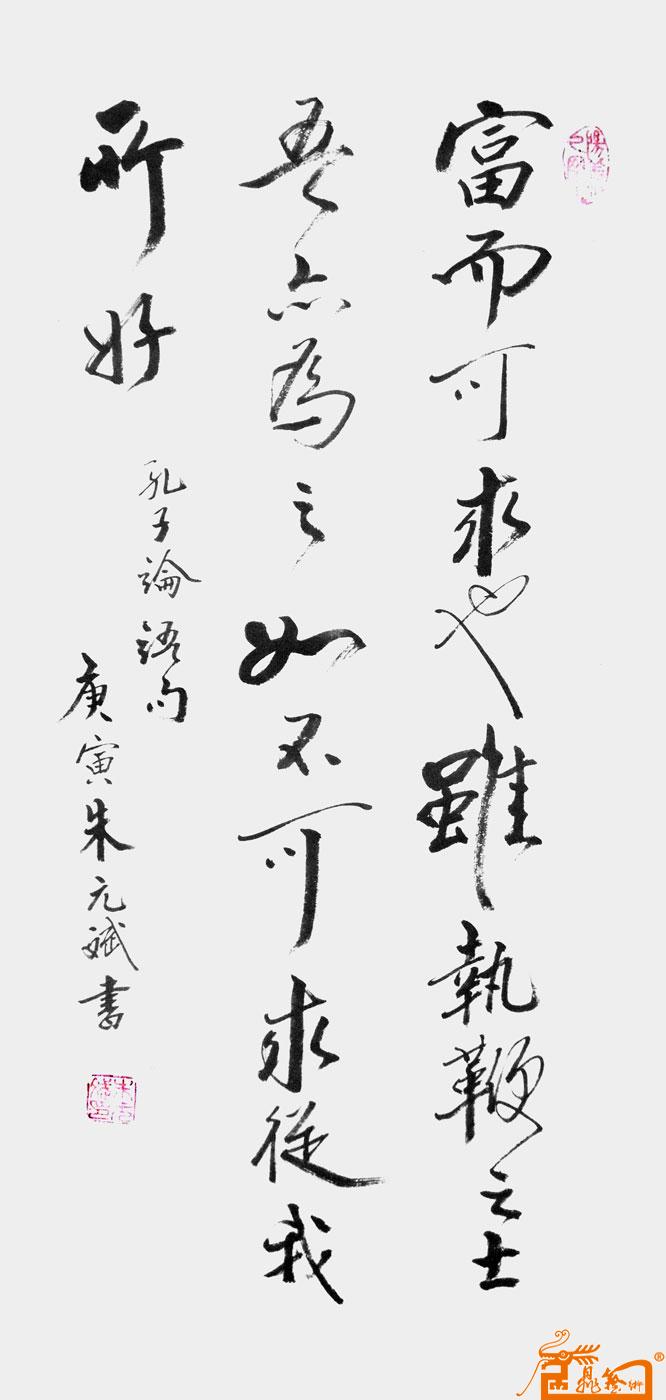 富而可求也雖執鞭之士
吾亦為之如不可求從我
所好
孔子論語句
庚寅朱元斌書